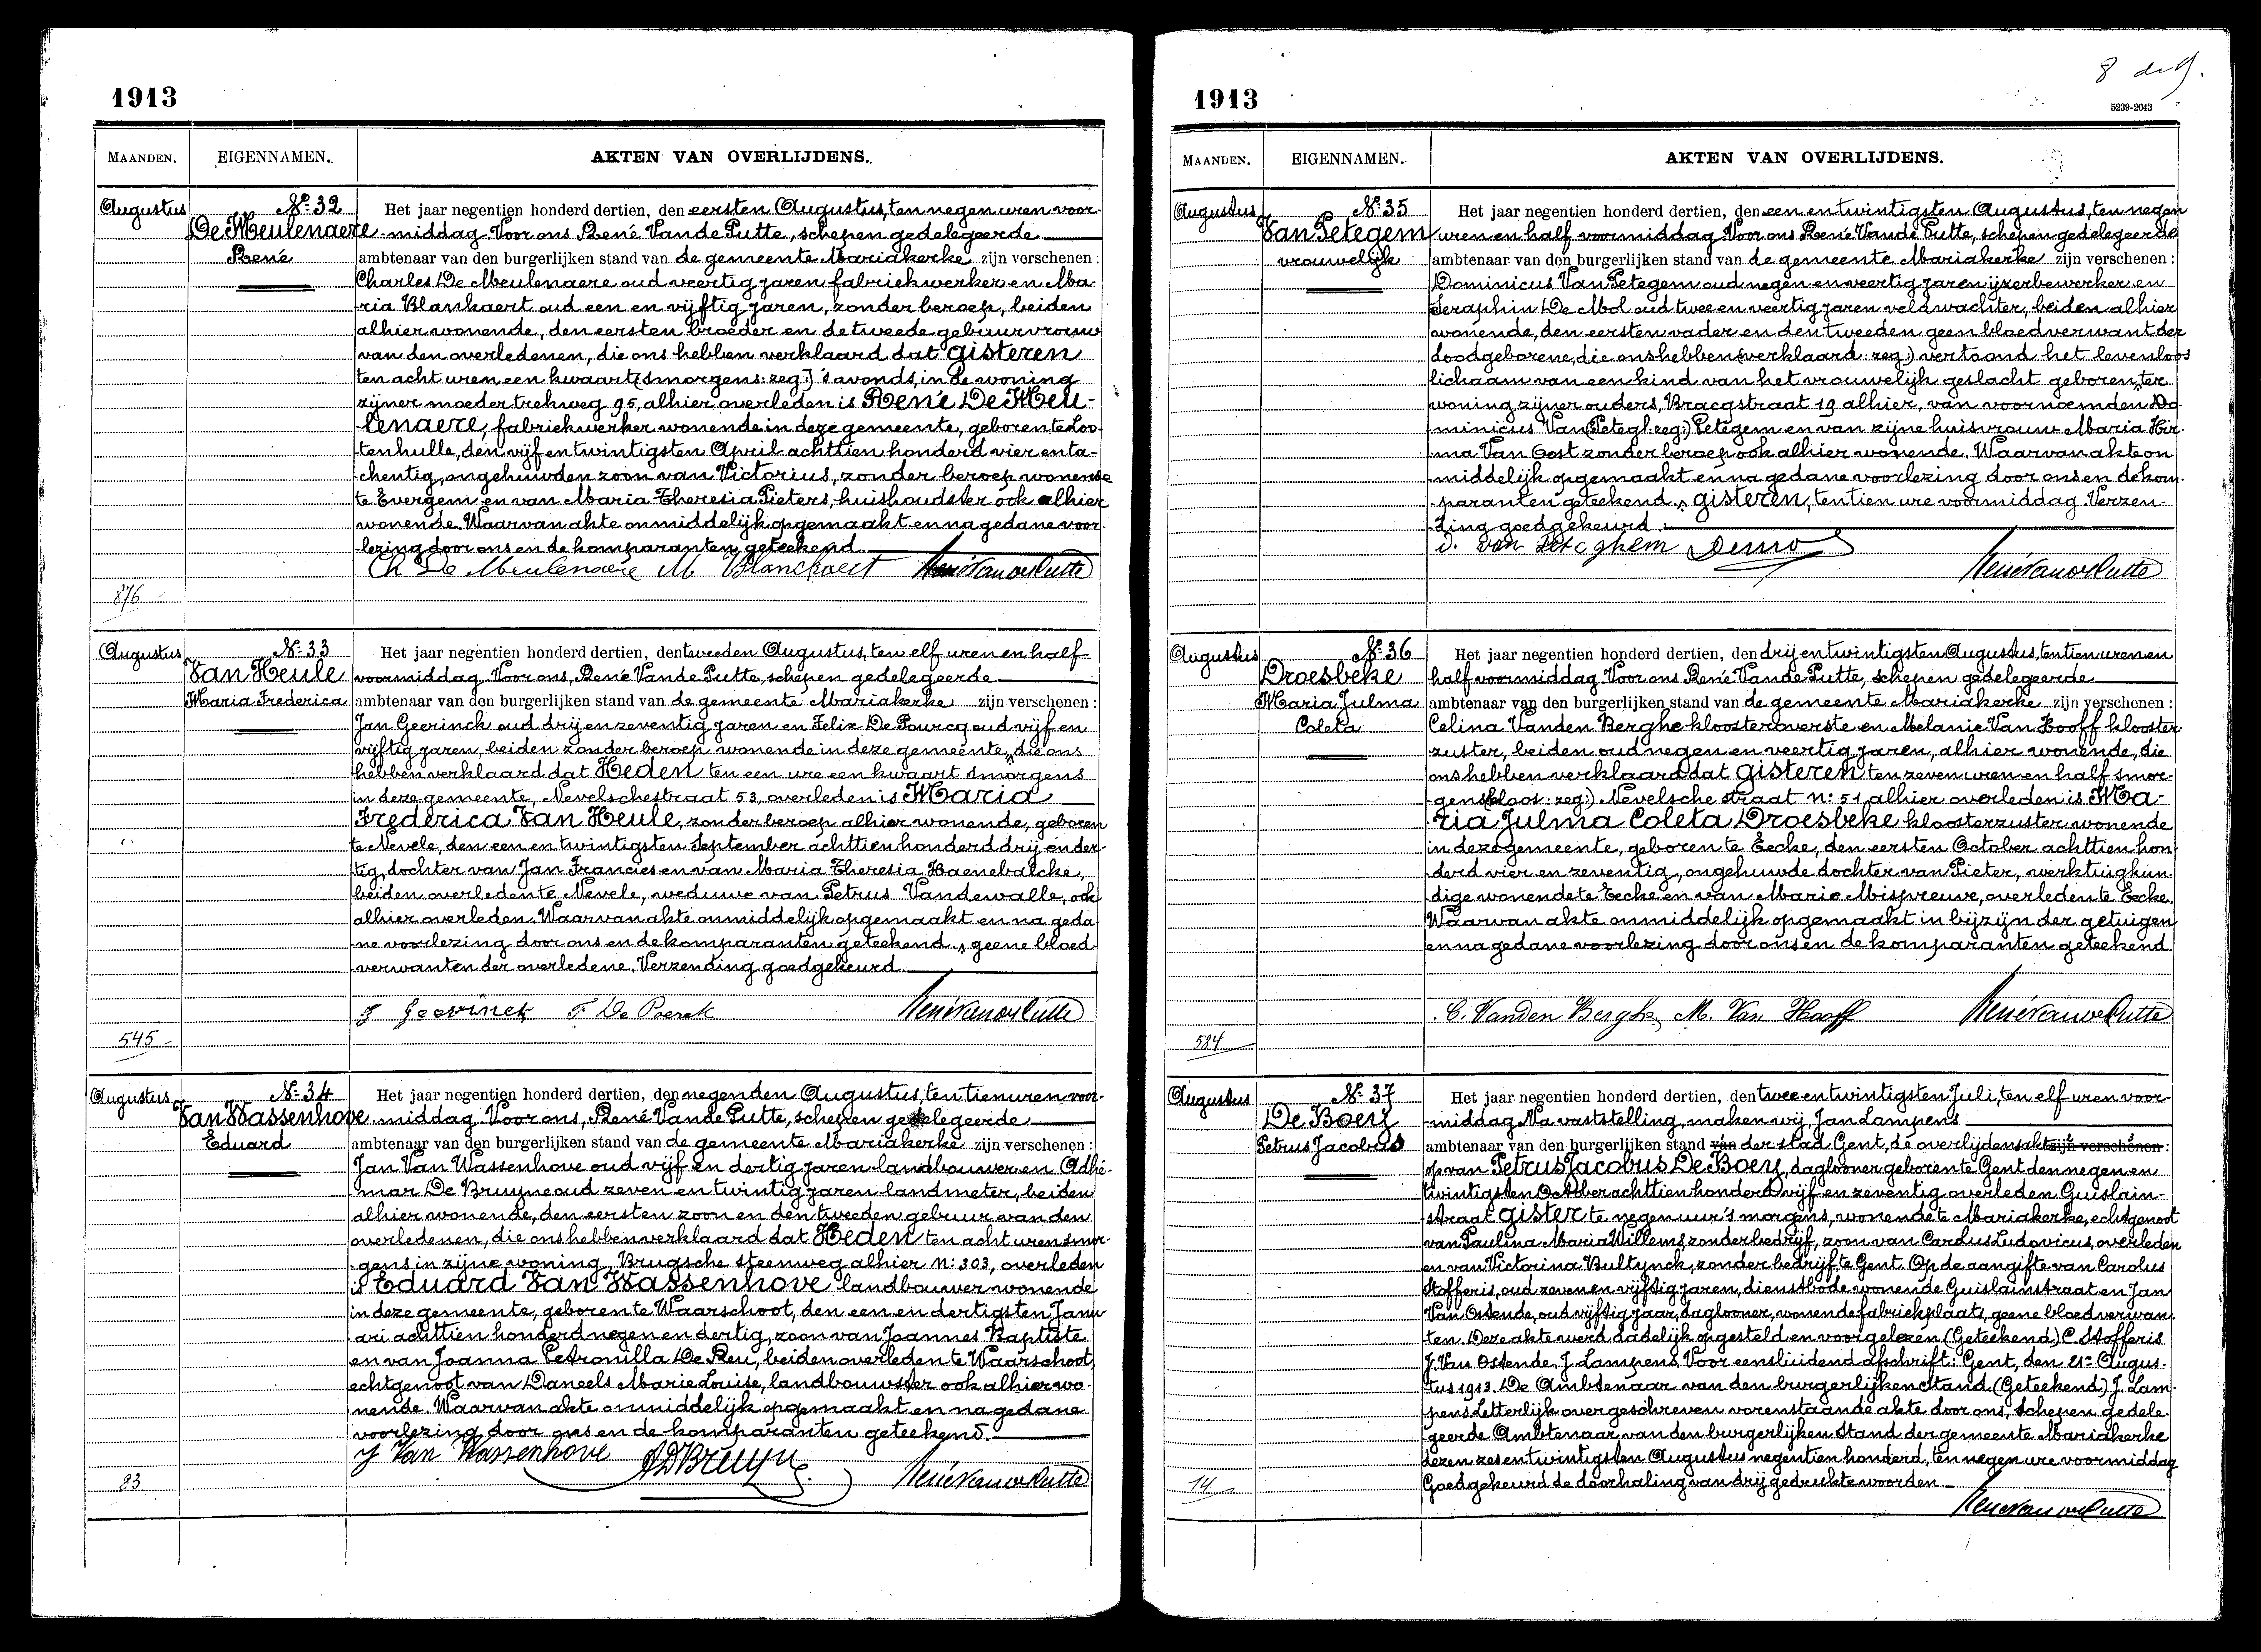 1913
MAANDEN. EIGENNAMEN. AKTEN VAN OVERLIJDENS.
Augustus
N° 32
De Meulenaere
René
Het jaar negentien honderd dertien, den eersten Augustus, ten negen uren voor-
-middag. Voor ons René Van de Putte, schepen gedelegeerde
ambtenaar van den burgerlijken stand van de gemeente Mariakerke zijn verschenen:
Charles De Meulenaere oud veertig jaren fabriekwerker en Ma-
-ria Blankaert oud een en vijftig jaren, zonder beroep, beiden
alhier wonende, den eersten broeder en de tweede gebuurvrouw
van den overledenen, die ons hebben verklaard dat gisteren
ten acht uren een kwaart (smorgens: zeg:) 's avonds, in de woning
zijner moeder trekweg 95, alhier overleden is René De Meu-
-lenaere, fabriekwerker wonende in deze gemeente, geboren te Loo-
-tenhulle, den vijf en twintigsten April achttien honderd vier en ta-
-chentig, ongehuwden zoon van Victorius, zonder beroep wonende
te Evergem en van Maria Theresia Pieters, huishoudster ook alhier
wonende. Waarvan akte onmiddelijk opgemaakt en na gedane voor-
-lezing door ons en de komparanten geteekend.
Ch De Meulenaere M Blanckaert René Van de Putte
876
Augustus
N° 33
Van Heule
Maria Frederica
Het jaar negentien honderd dertien, den tweeden Augustus, ten elf uren en half
voormiddag. Voor ons, René Van de Putte, schepen gedelegeerde
ambtenaar van den burgerlijken stand van de gemeente Mariakerke zijn verschenen:
Jan Geerinck oud drij en zeventig jaren en Felix De Pourcq oud vijf en
vijftig jaren, beiden zonder beroep wonende in deze gemeente, die ons
hebben verklaard dat Heden ten een ure een kwaart smorgens
in deze gemeente, Nevelschestraat 53, overleden is Maria
Frederica Van Heule, zonder beroep alhier wonende, geboren
te Nevele, den een en twintigsten September achttien honderd drij en der-
-tig, dochter van Jan Francies en van Maria Theresia Haenebalcke,
beiden overleden te Nevele, weduwe van Petrus Vandewalle, ook
alhier overleden. Waarvan akte onmiddelijk opgemaakt en na geda-
-ne voorlezing door ons en de komparanten geteekend. geene bloed-
-verwanten der overledene. Verzending goedgekeurd.
J Geerinck F De Poerck René Van de Putte
545
Augustus
N° 34
Van Wassenhove
Eduard
Het jaar negentien honderd dertien, den negenden Augustus, ten tien uren voor-
-middag. Voor ons, René Van de Putte, schepen gedelegeerde
ambtenaar van den burgerlijken stand van de gemeente Mariakerke zijn verschenen:
Jan Van Wassenhove oud vijf en dertig jaren landbouwer en Adhé-
-mar De Bruyne oud zeven en twintig jaren landmeter, beiden
alhier wonende, den eersten zoon en den tweeden gebuur van den
overledenen, die ons hebben verklaard dat Heden ten acht uren smor-
-gens in zijne woning, Brugsche steenweg alhier N: 303, overleden
is Eduard Van Wassenhove landbouwer wonende
in deze gemeente, geboren te Waarschoot, den een en dertigsten Janu-
-ari achttien honderd negen en dertig, zoon van Joannes Baptiste
en van Joanna Petronilla De Reu, beiden overleden te Waarschoot,
echtgenoot van Daneels Marie Louise, landbouwster ook alhier wo-
-nende. Waarvan akte onmiddelijk opgemaakt en na gedane
voorlezing door ons en de komparanten geteekend.
J Van Wassenhove A D Bruyne René Van de Putte
83
8
1913
5239-2043
MAANDEN. EIGENNAMEN. AKTEN VAN OVERLIJDENS.
Augustus
N° 35
Van Petegem
vrouwelijk
Het jaar negentien honderd dertien, den een en twintigsten Augustus, ten negen
uren en half voormiddag. Voor ons René Van de Putte, schepen gedelegeerde
ambtenaar van den burgerlijken stand van de gemeente Mariakerke zijn verschenen:
Dominicus Van Petegem oud negen en veertig jaren ijzerbewerker en
Seraphin De Mol oud twee en veertig jaren veldwachter, beiden alhier
wonende, den eersten vader en den tweeden geen bloedverwant der
doodgeborene, die ons hebben (verklaard: zeg:) vertoond het levenloos
lichaam van een kind van het vrouwelijk geslacht geboren, ter
woning zijner ouders, Bracqstraat 19 alhier, van voornoemden Do-
-minicus Van (Petegl: zeg:) Petegem en van zijne huisvrouw Maria Hir-
-ma Van Oost zonder beroep ook alhier wonende. Waarvan akte on-
-middelijk opgemaakt en na gedane voorlezing door ons en de kom-
-paranten geteekend. gisteren, ten tien ure voormiddag. Verzen-
-ding goedgekeurd.
D. Van Peteghem Demol René Van de Putte
Augustus
N° 36
Droesbeke
Maria Julma
Coleta
Het jaar negentien honderd dertien, den drij en twintigsten Augustus, ten tien uren en
half voormiddag. Voor ons René Van de Putte, schepen gedelegeerde
ambtenaar van den burgerlijken stand van de gemeente Mariakerke zijn verschenen:
Celina Vanden Berghe kloosteroverste en Melanie Van Hooff klooster
zuster, beiden oud negen en veertig jaren, alhier wonende, die
ons hebben verklaard dat gisteren ten zeven uren en half smor-
-gens (kloos: zeg:) Nevelsche straat N: 51 alhier overleden is Ma-
-ria Julma Coleta Droesbeke kloosterzuster wonende
in deze gemeente, geboren te Eecke, den eersten October achttien hon-
derd vier en zeventig, ongehuwde dochter van Pieter, werktuigkun-
dige wonende te Eecke en van Marie Mispreuve, overleden te Eecke.
Waarvan akte onmiddelijk opgemaakt in bijzijn der getuigen
en na gedane voorlezing door ons en de komparanten geteekend.
C. Vanden Berghe M. Van Hooff René Van de Putte
584
Augustus
N° 37
De Boey
Petrus Jacobus
Het jaar negentien honderd dertien, den twee en twintigsten Juli, ten elf uren voor-
-middag. Na vaststelling, maken wij, Jan Lampens
ambtenaar van den burgerlijken stand van der stad Gent, de overlijdensakt zijn verschenen:
op van Petrus Jacobus De Boey, daglooner geboren te Gent den negen en
twintigsten October achttien honderd vijf en zeventig overleden Guislain-
-straat gister te negen uur 's morgens, wonende te Mariakerke, echtgenoot
van Paulina Maria Willems, zonder bedrijf, zoon van Carolus Ludovicus, overleden
en van Victorina Bultynck, zonder bedrijf te Gent. Op de aangifte van Carolus
Stofferis, oud zeven en vijftig jaren, dienstbode wonende Guislainstraat en Jan
Van Ostende, oud vijftig jaar, daglooner, wonende fabriekplaats, geene bloedverwan-
-ten. Deze akte werd dadelijk opgesteld en voorgelezen (Geteekend) C. Stofferis
J. Van Ostende. J. Lampens. Voor eensluidend afschrift: Gent, den 21n Augus-
-tus 1913. De Ambtenaar van den burgerlijken Stand. (Geteekend) J. Lam-
pens. Letterlijk overgeschreven vorenstaande akte door ons, Schepen gedele-
-geerde Ambtenaar van den burgerlijken Stand der gemeente Mariakerke
dezen zes en twintigsten Augustus negentien honderd, ten negen ure voormiddag
Goedgekeurd de doorhaling van drij gedrukte woorden.
René Van de Putte
14